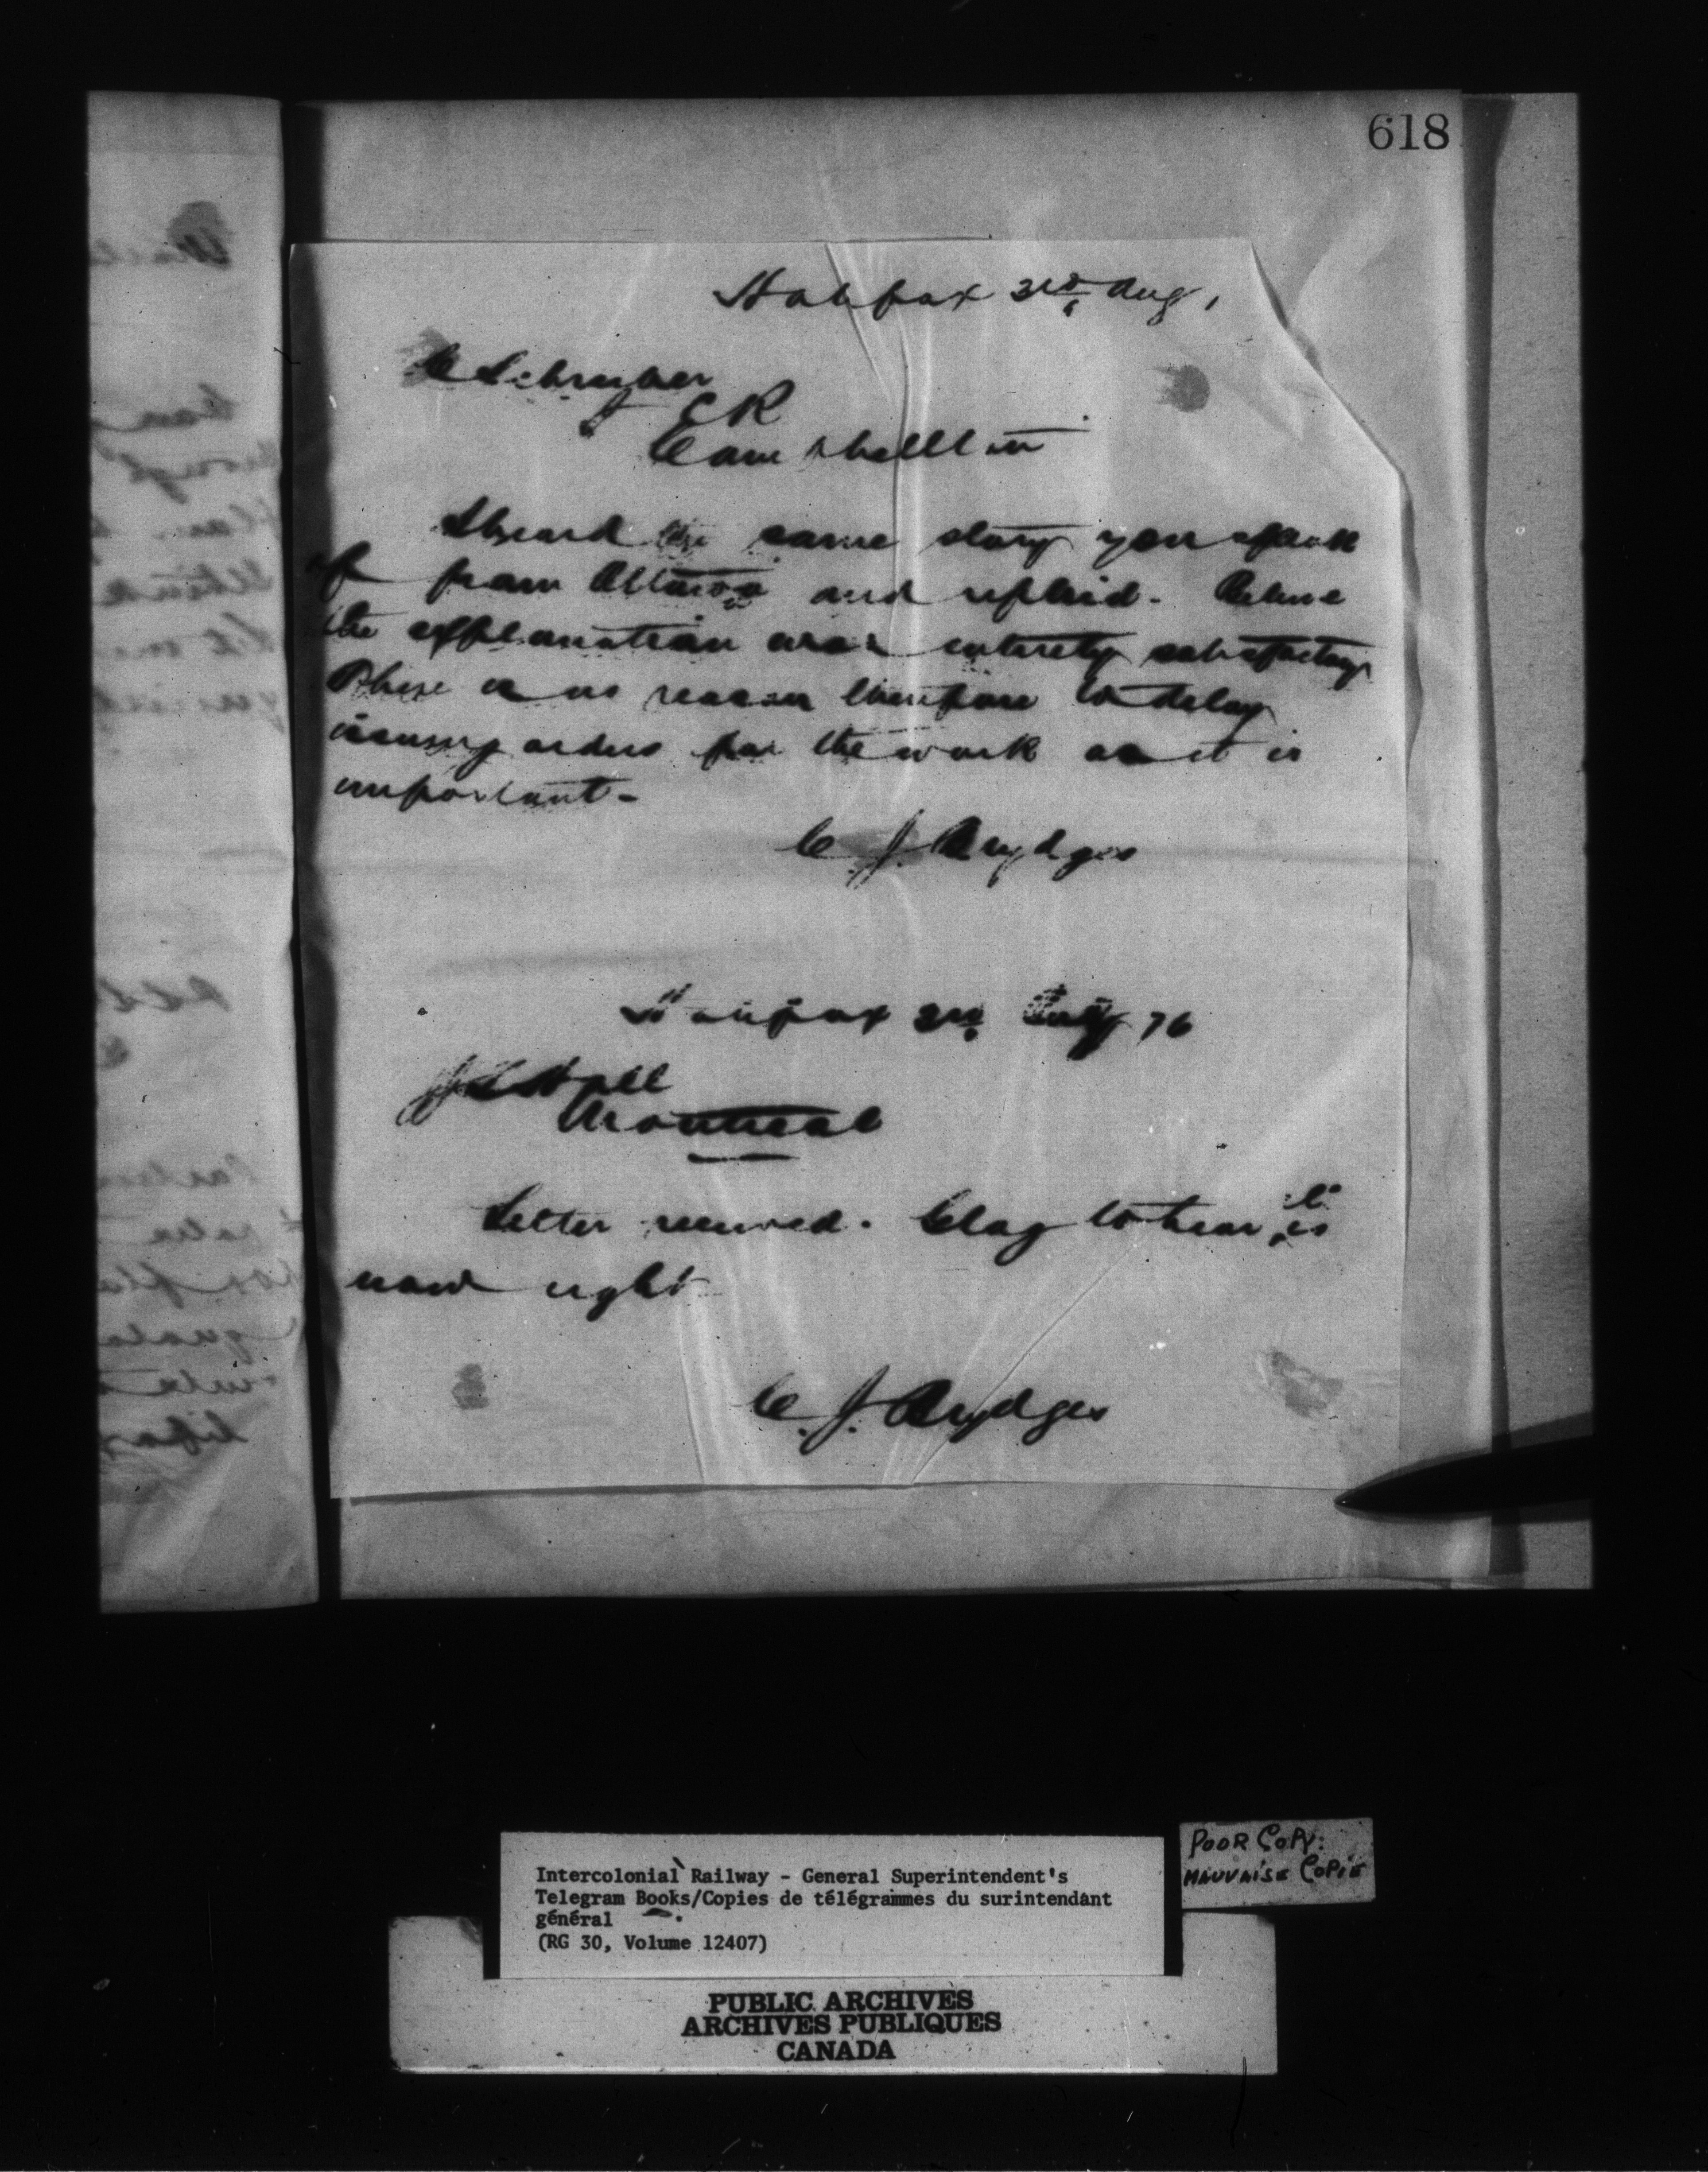 618
Halifax 3rd Aug,
C Schreiber
ER
Campbellton
I heard the same story you speak
of from Ottawa and replied. Believe
the explanation was entirely satisfactory
There is no reason therefore to delay
issuing orders for the work as it is
important -
C J Brydges
Halifax 3rd 76
Hall
Montreal
Letter received. Glag to hear it is
now right
C. J. Brydges
POOR COPY.
MAUVAISE COPIE
Intercolonial Railway - General Superintendent's
Telegram Books/Copies de télégrammes du surintendant
général
(RG 30, Volume 12407)
PUBLIC ARCHIVES
ARCHIVES PUBLIQUES
CANADA